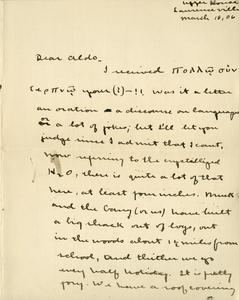 Upper House
Lawrenceville
March 10, 06
Dear Aldo.
I received πολλῷ σὺν
τερπνῷ your (?)—!! Was it a letter
an oration — a discourse on languages
or a lot of jokes, but I'll let you
judge since I admit that I can't,
now referring to the crystallized
H2O, there is quite a lot of that
here, at least four inches.
and the Gang (or us) have built
a big shack out of logs, out
in the woods about 1½ miles from
school, and thither we go
every half holiday. It is
We have a roof covering